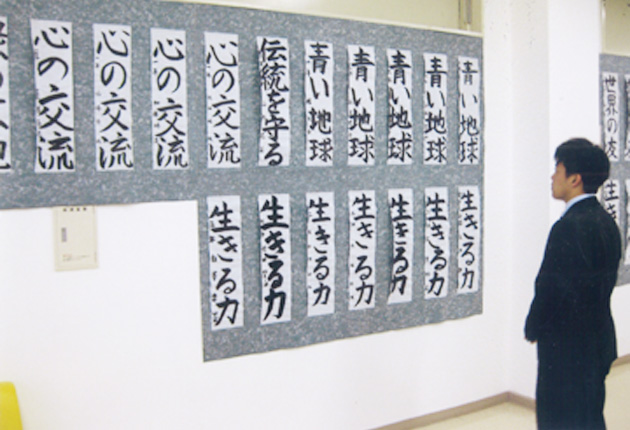 世界の友
生き
青い地球
青い地球
青い地球
青い地球
青い地球
伝統を守る
心の交流
心の交流
心の交流
心の交流
生きる力
生きる力
生きる力
生きる力
生きる力
生きる力
生きる力